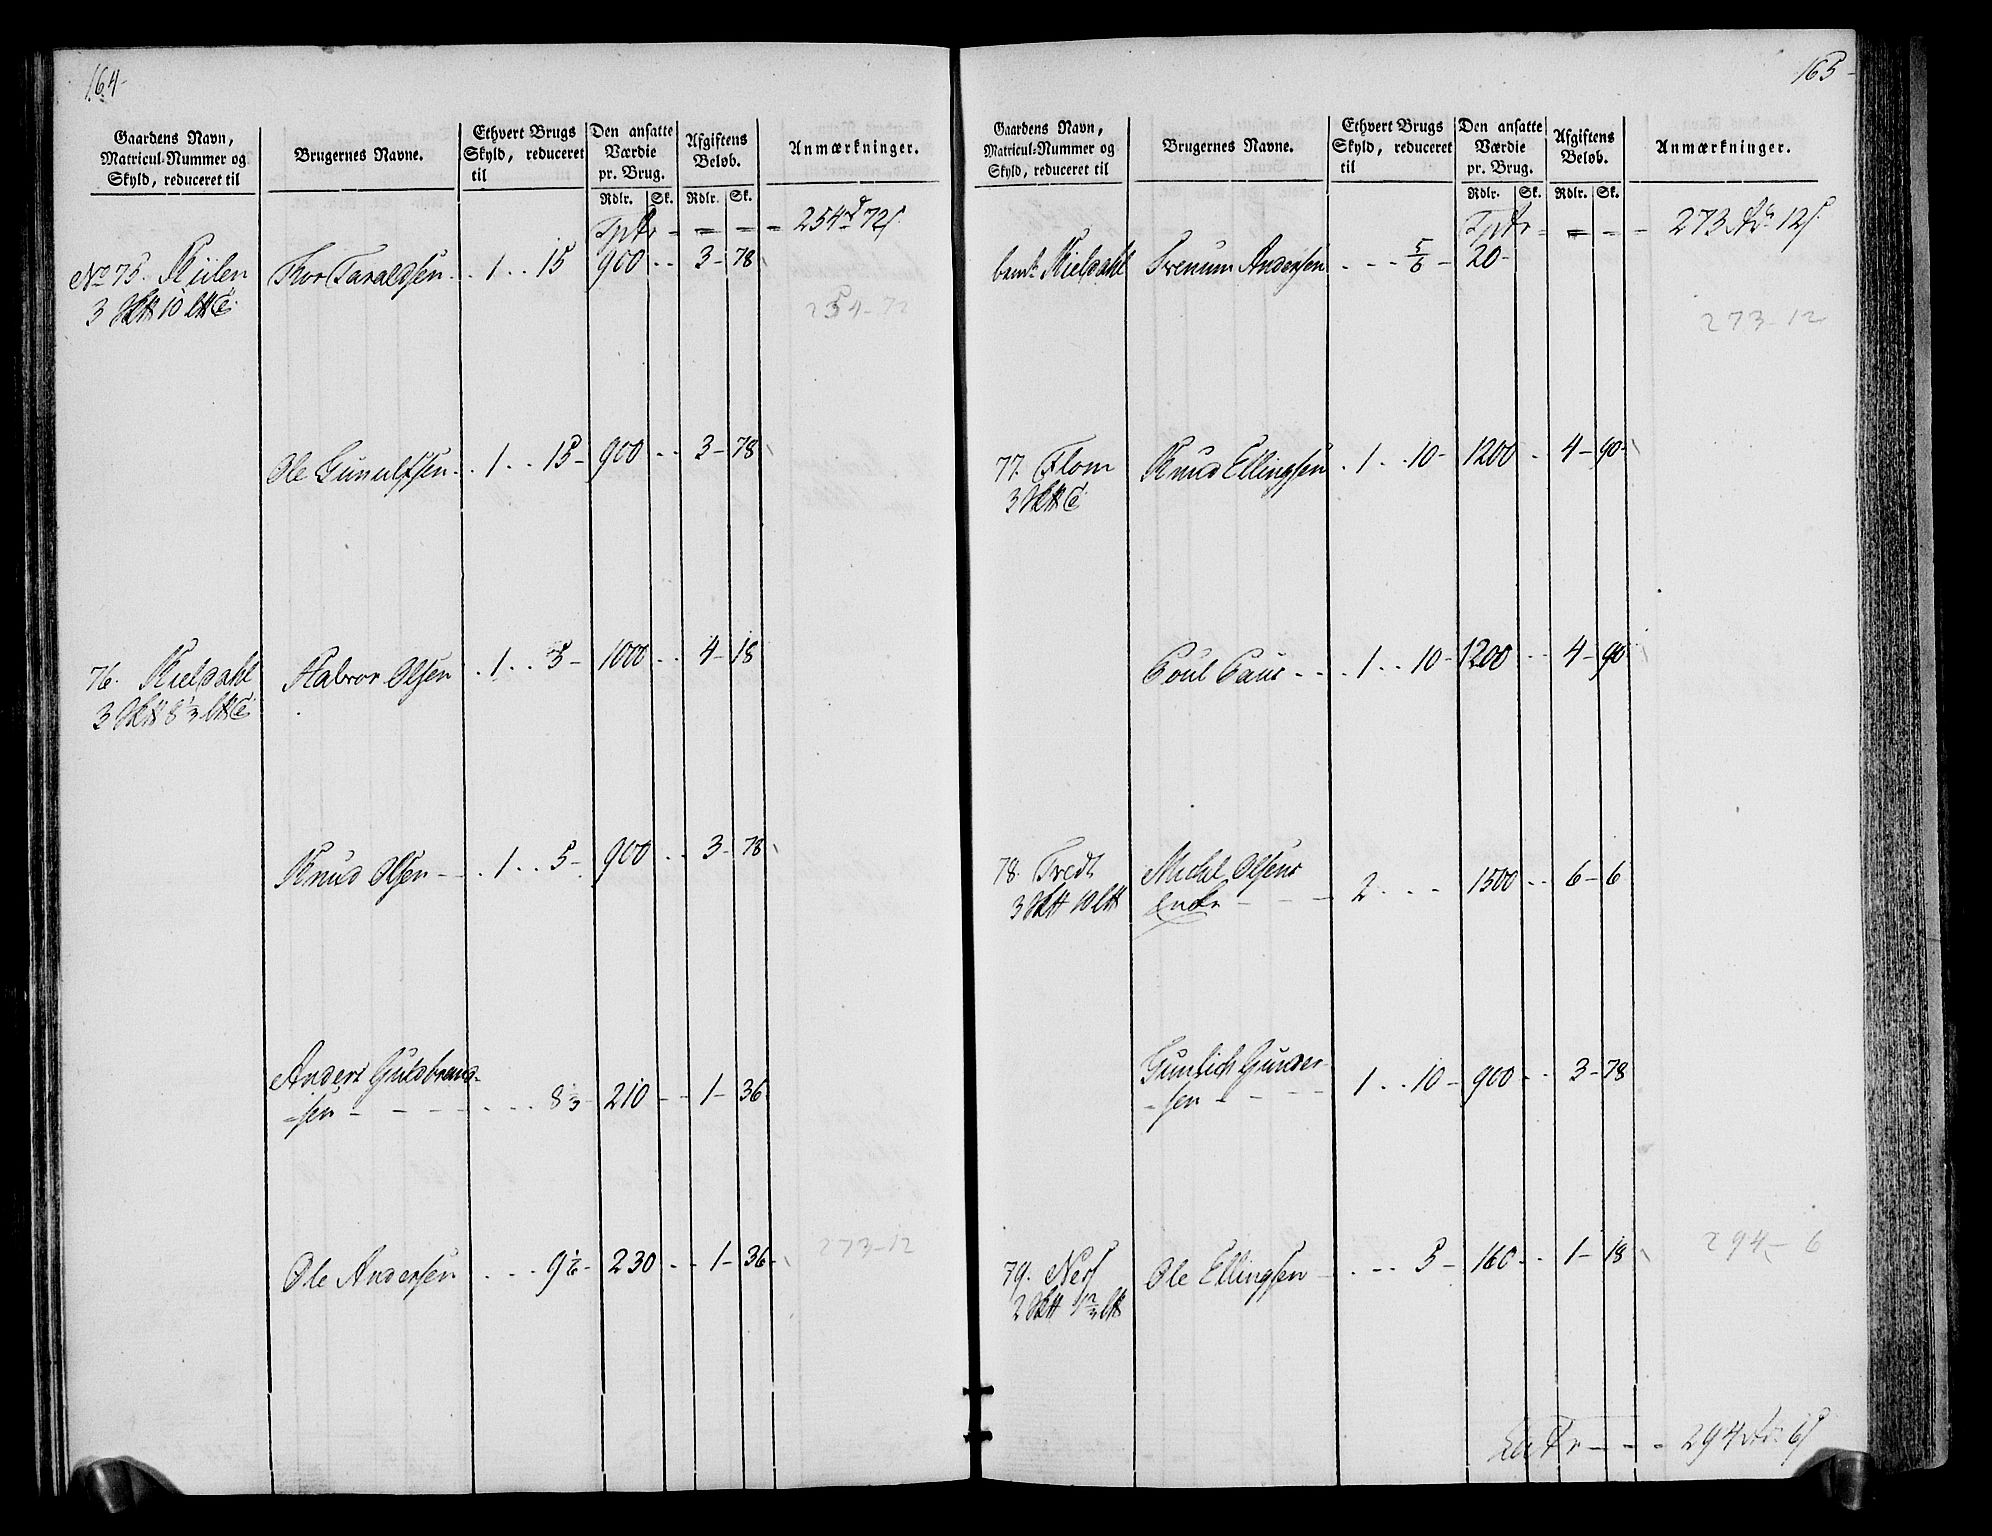 164-
Gaardens Navn, Matricul-Nummer og Skyld, reduceret til | Brugernes Navne. | Ethvert Brugs Skyld, reduceret til | Den ansatte Værdie pr. Brug. | Afgiftens Beløb. | Anmærkninger.
Rdlr. Sk. Rdlr. Sk.
Tptr - - - - 254 72
No 75. Kiilen Thor Taraldsen . 1 . . 15 900 . . 3 - 78
3 10
254-72
Ole Gunulfsen . 1 . . 15 - 900 . . 3 - 78
76. Kieldahl Halvor Olsen . 1 . . 5 - 1000 . . 4 - 18
3 8 1/3
Knud Olsen - . 1 . . 5 - 900 . . 3 - 78
Anders Guldbrand-
-sen - - - - . . . 8 1/3 - 210 - - 1 - 36
273-12
Ole Andersen . . . 9 1/6 - 230 . . 1 - 36
165-
Gaardens Navn, Matricul-Nummer og Skyld, reduceret til | Brugernes Navne. | Ethvert Brugs Skyld, reduceret til | Den ansatte Værdie pr. Brug. | Afgiftens Beløb. | Anmærkninger.
Rdlr. Sk. Rdlr. Sk.
Tptr - - - - 273 12
Kieldahl Svenum Andersen . - - 5/6 - 20 -
273-12
77. Flom Knud Ellingsen . 1 . . 10 - 1200 . . 4 - 90
3
Poul Paus . . . 1 . . 10 - 1200 . . 4 - 90
78. Tredt Michel Olsens
3 10 Enke - - - 2 . . - 1500 . . 6 - 6
Gunlich Gunder-
-sen - - - 1 . . 10 - 900 . . 3 - 78
294-6
79. Nes Ole Ellingsen - . . . 5 - 160 . . 1 - 18
2
Latr - - - 294 6